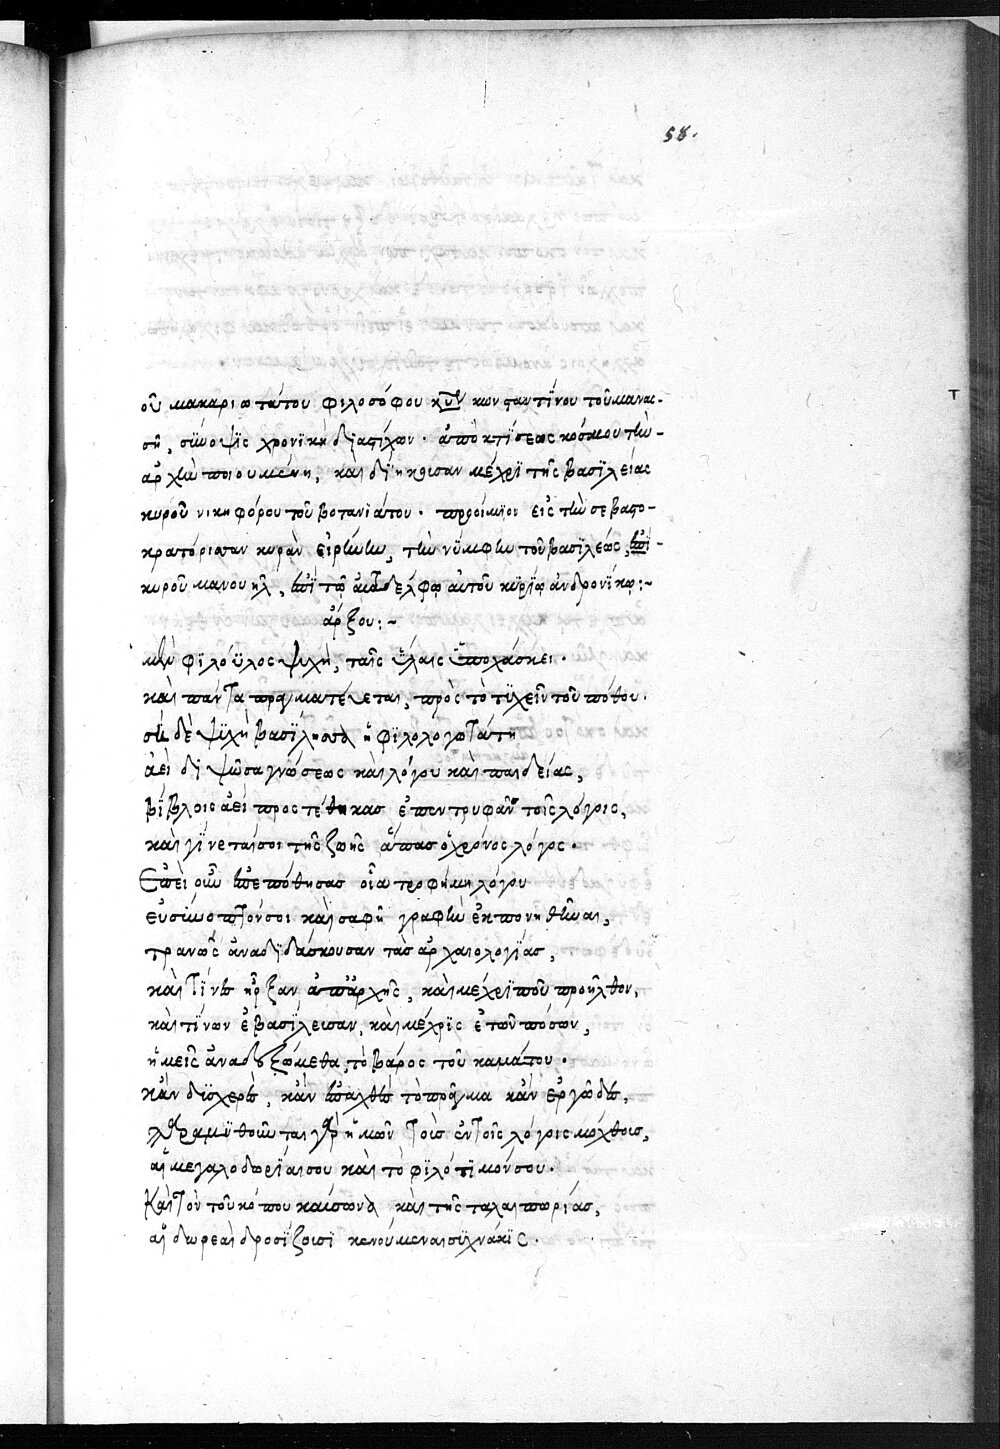 58.
οῦ μακαριωτάτου φιλοσόφου κυροῦ κωνσταντίνου τοῦ μανασ-
σῆ, σύνοψις χρονικὴ διαστίχων. ἀπὸ κτίσεως κόσμου τὴν
ἀρχὴν ποιουμένη, καὶ διήκουσαν μέχρι τῆς βασιλείας
κυροῦ νικηφόρου τοῦ βοτανιάτου. προοίμιον εἰς τὴν σεβαστο-
κρατόρισσαν κυρὰν εἰρήνην, τὴν νύμφην τοῦ βασιλέως,
κυροῦ μανουὴλ, ἐπὶ τῶ ἀδελφῶ αὐτοῦ κυρίω ἀνδρονίκω:~
ἄρξου:~
μὲν φιλόϋλος ψυχὴ, ταῖς ὕλαις ὑποχάσκει.
καὶ πάντα πραγματεύεται, πρὸς τὸ τυχεῖν τοῦ πόθου.
σὺ δὲ ψυχὴ βασίλισσα ἡ φιλολογωτάτη
ἀεὶ διψῶσα γνώσεως καὶ λόγου καὶ παιδείας,
βίβλοις ἀεὶ προστέθηκας ἐπεντρυφᾶν τοῖς λόγοις,
καὶ γίνεταί σοι τῆς ζωῆς ἅπας ὁ χρόνος λόγος.
Ἐπεὶ οὖν ἐπεπόθησας οἷα τροφίμη λόγου
εὐσύνοπτόν σοι καὶ σαφῆ γραφὴν ἐκπονηθῆναι,
τρανῶς ἀναδιδάσκουσαν τὰς ἀρχαιολογίας,
καὶ τίνες ἦρξαν ἀπαρχῆς, καὶ μέχρι ποῦ προῆλθον,
καὶ τίνων ἐβασίλευσαν, καὶ μέχρις ἐτῶν πόσων,
ἡμεῖς ἀναδεξώμεθα, τὸ βάρος τοῦ καμάτου.
κἂν δυσχερὲς, κἂν ἐπαχθὲς τὸ πρᾶγμα κἂν ἐργῶδες,
παραμυθοῦνται γὰρ ἡμῶν τοῖς ἐν τοῖς λόγοις μόχθοις,
αἱ μεγαλοδωρίαι σου καὶ τὸ φιλότιμόν σου.
Καὶ τὸν τοῦ κόπου καύσωνα καὶ τῆς ταλαιπωρίας,
αἱ δωρεαὶ δροσίζουσι κενούμεναι συχνάκις.